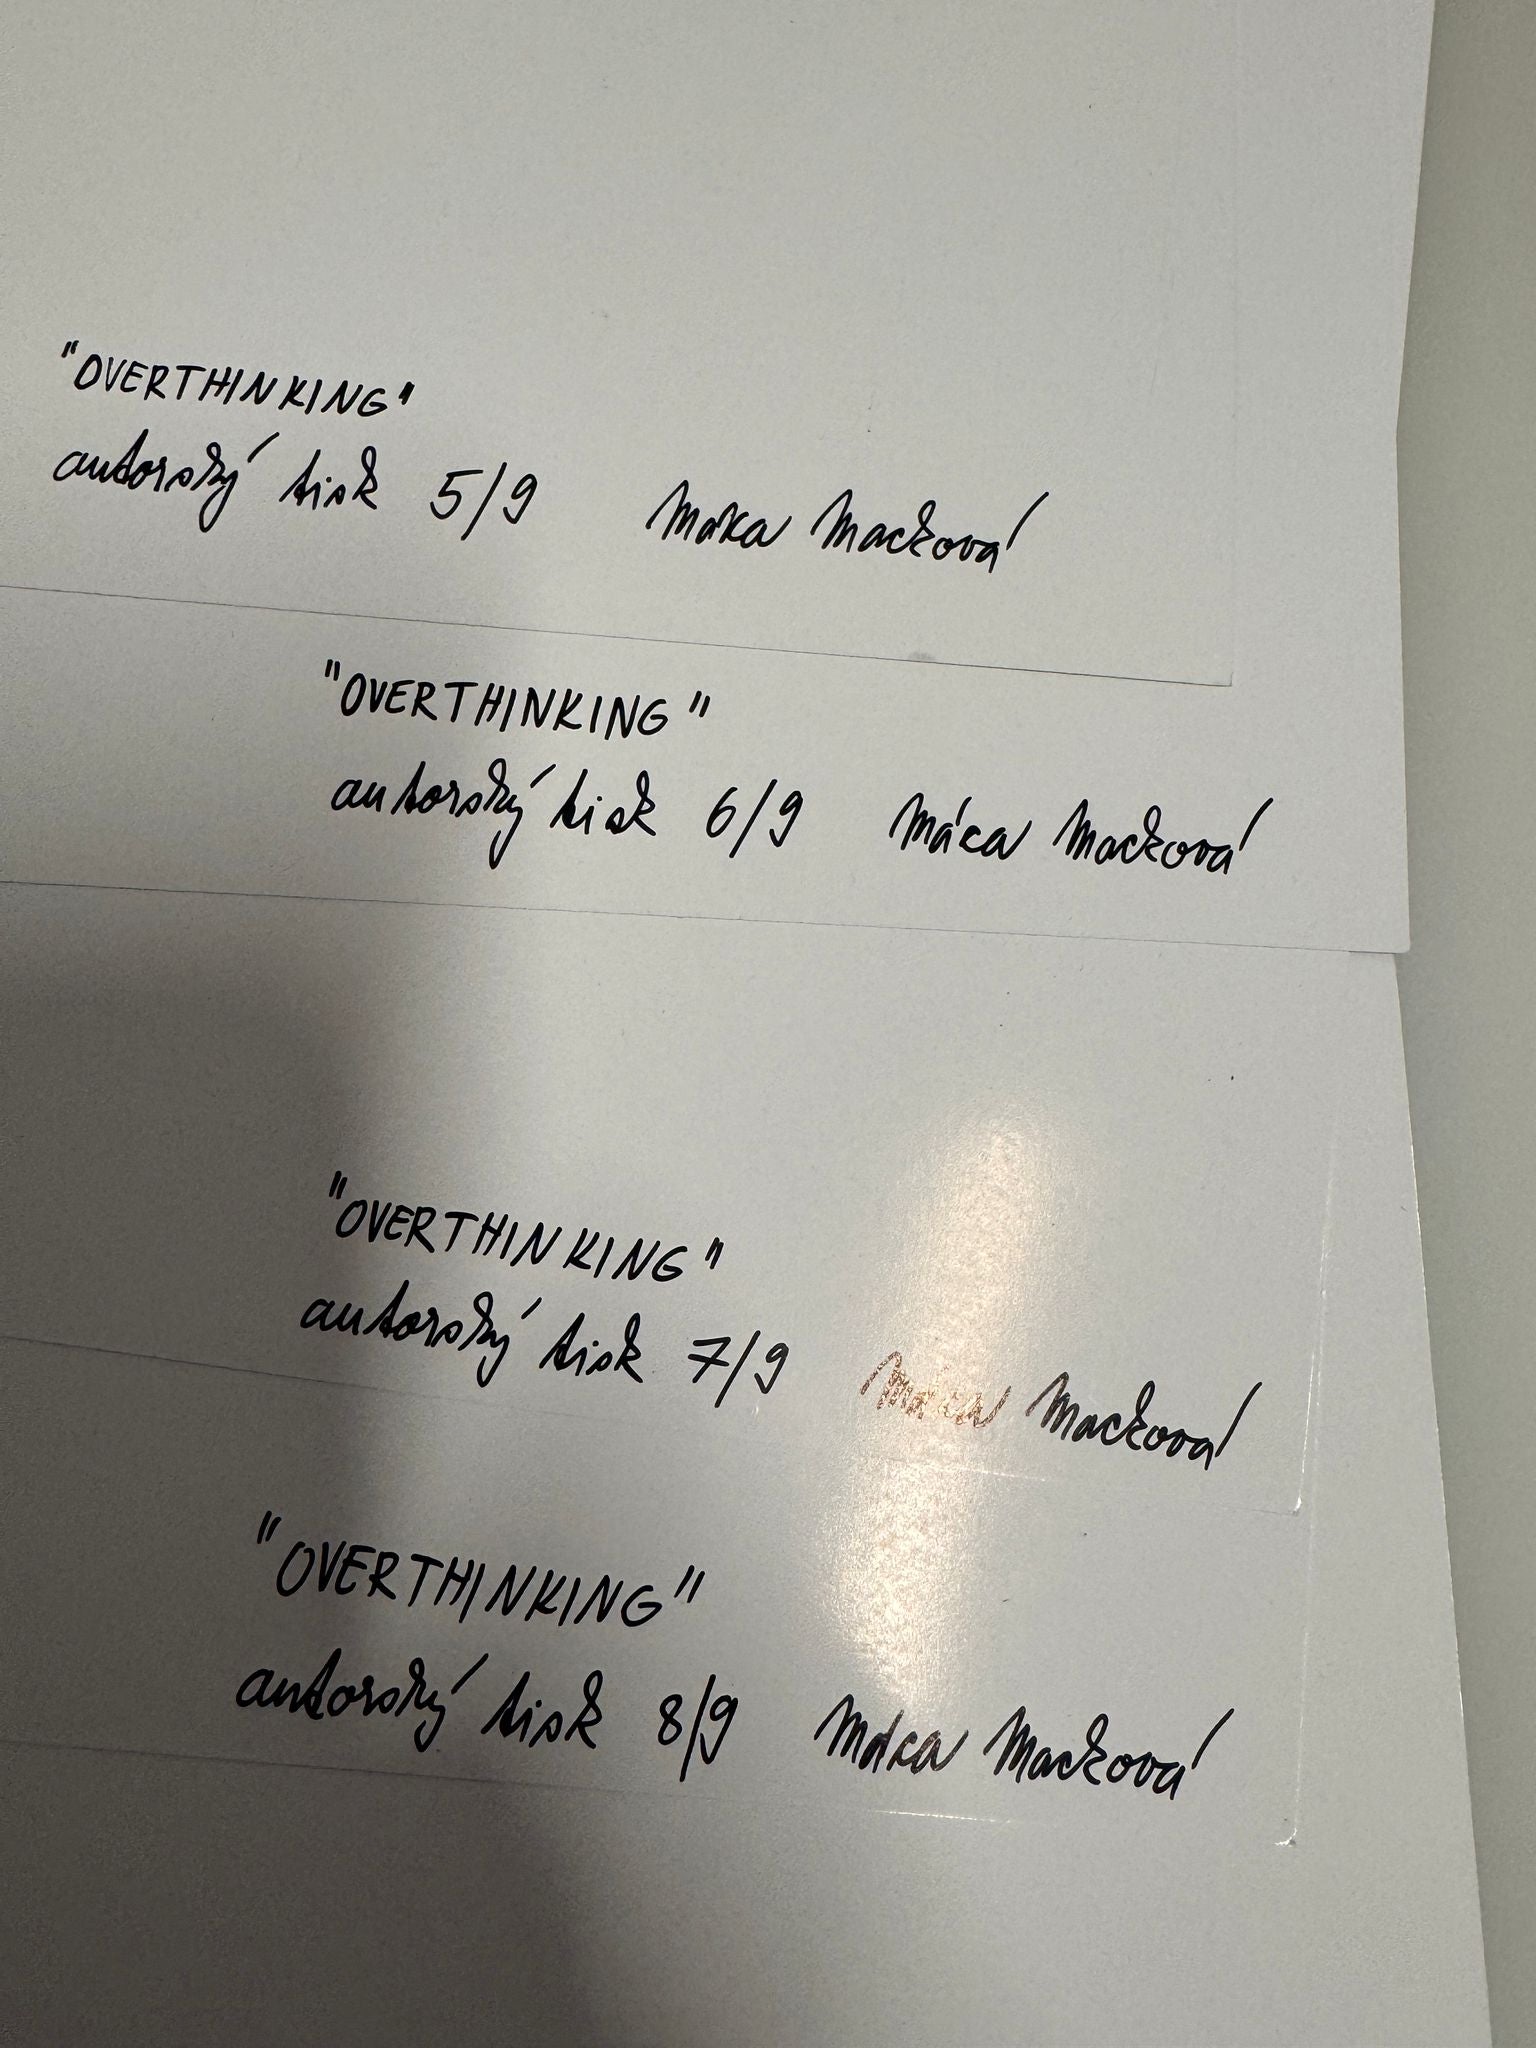 "OVERTHINKING"
autorský tisk 5/9 Máca Macková
"OVERTHINKING"
autorský tisk 6/9 Máca Macková
"OVERTHINKING"
autorský tisk 7/9 Máca Macková
"OVERTHINKING"
autorský tisk 8/9 Máca Macková